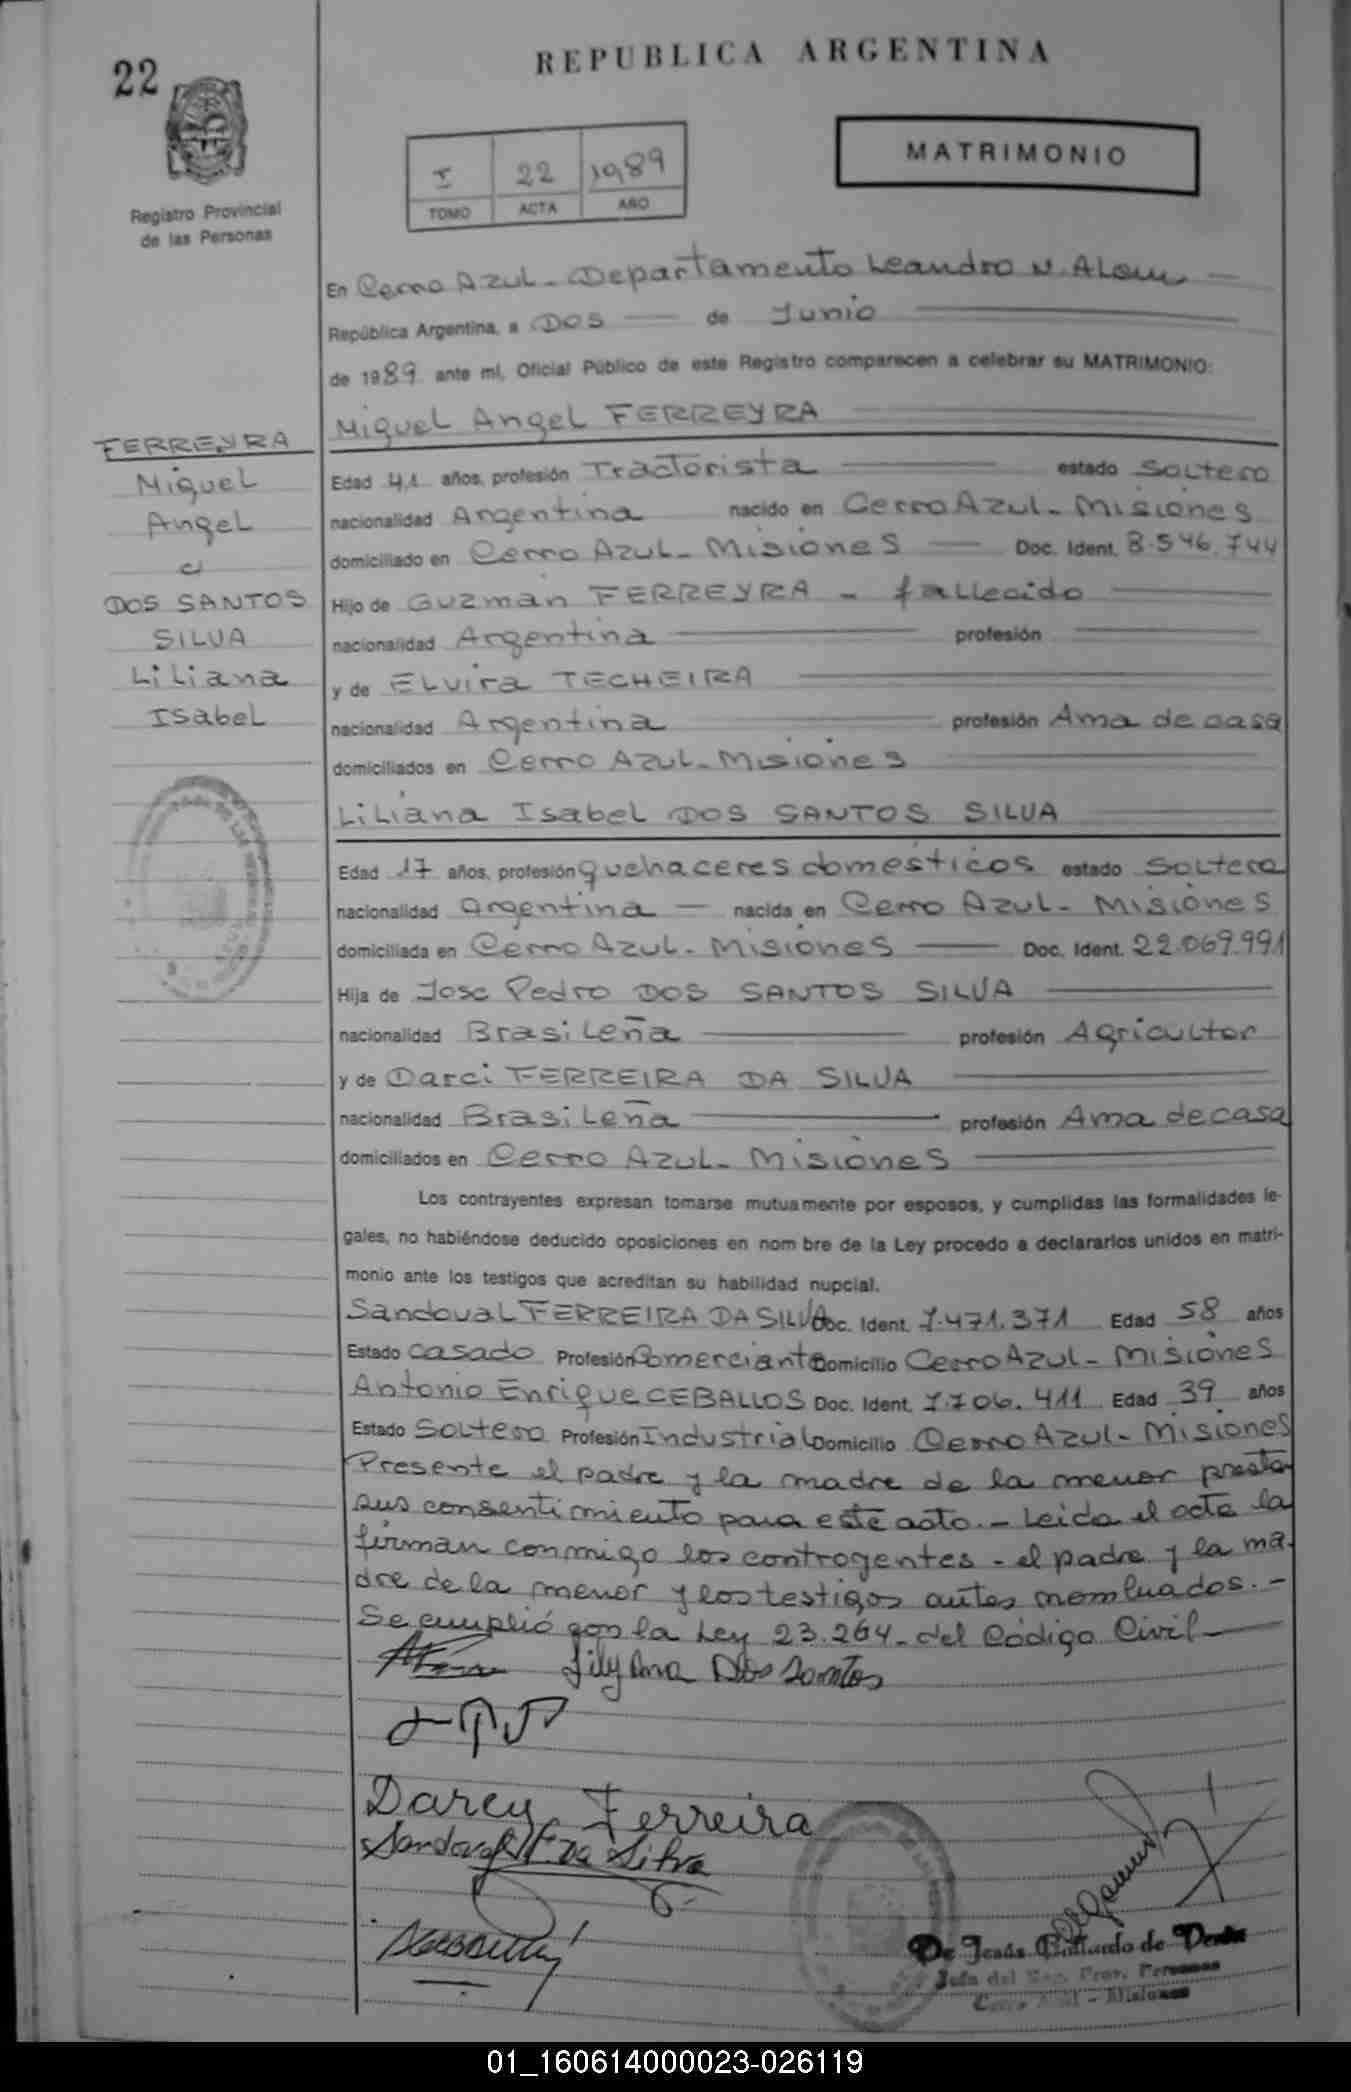 REPUBLICA ARGENTINA
22
MATRIMONIO
I 22 1989
TOMO ACTA AÑO
Registro Provincial
de las Personas
En Cerro Azul - Departamento Leandro N. Alem
República Argentina, a Dos de Junio
de 1989 ante mí, Oficial Público de este Registro comparecen a celebrar su MATRIMONIO:
Miguel Angel FERREYRA
FERREYRA
Miguel
Angel
c/
DOS SANTOS
SILVA
Liliana
Isabel
Edad 41 años, profesión Tractorista estado Soltero
nacionalidad Argentina nacido en Cerro Azul - Misiones
domiciliado en Cerro Azul - Misiones Doc. Ident. 8.546.744
Hijo de Guzmán FERREYRA - fallecido
nacionalidad Argentina profesión
y de Elvira TECHEIRA
nacionalidad Argentina profesión Ama de casa
domiciliados en Cerro Azul - Misiones
Liliana Isabel DOS SANTOS SILVA
Edad 17 años, profesión quehaceres domésticos estado Soltera
nacionalidad Argentina nacida en Cerro Azul - Misiones
domiciliada en Cerro Azul - Misiones Doc. Ident. 22.069.991
Hija de Jose Pedro DOS SANTOS SILVA
nacionalidad Brasileña profesión Agricultor
y de Darci FERREIRA DA SILVA
nacionalidad Brasileña profesión Ama de casa
domiciliados en Cerro Azul - Misiones
Los contrayentes expresan tomarse mutuamente por esposos, y cumplidas las formalidades le-
gales, no habiéndose deducido oposiciones en nom bre de la Ley procedo a declararlos unidos en matri-
monio ante los testigos que acreditan su habilidad nupcial.
Sandoval FERREIRA DA SILVA Doc. Ident. 7.471.371 Edad 58 años
Estado Casado Profesión Comerciante Domicilio Cerro Azul - Misiones
Antonio Enrique CEBALLOS Doc. Ident. 7.706.411 Edad 39 años
Estado Soltero Profesión Industrial Domicilio Cerro Azul - Misiones
Presente el padre y la madre de la menor prestan
sus consentimiento para este acto. - Leida el acta la
firman conmigo los contrayentes - el padre y la ma-
dre de la menor y los testigos antes nombrados. -
Se cumplió con la Ley 23.264 - del Código Civil
Lilyana Dos Santos
Darcy Ferreira
Sandoval F. Da Silva
De Jesús Gallardo de
Jefa del Reg. Prov. Personas
Cerro Azul - Misiones
01_160614000023-026119